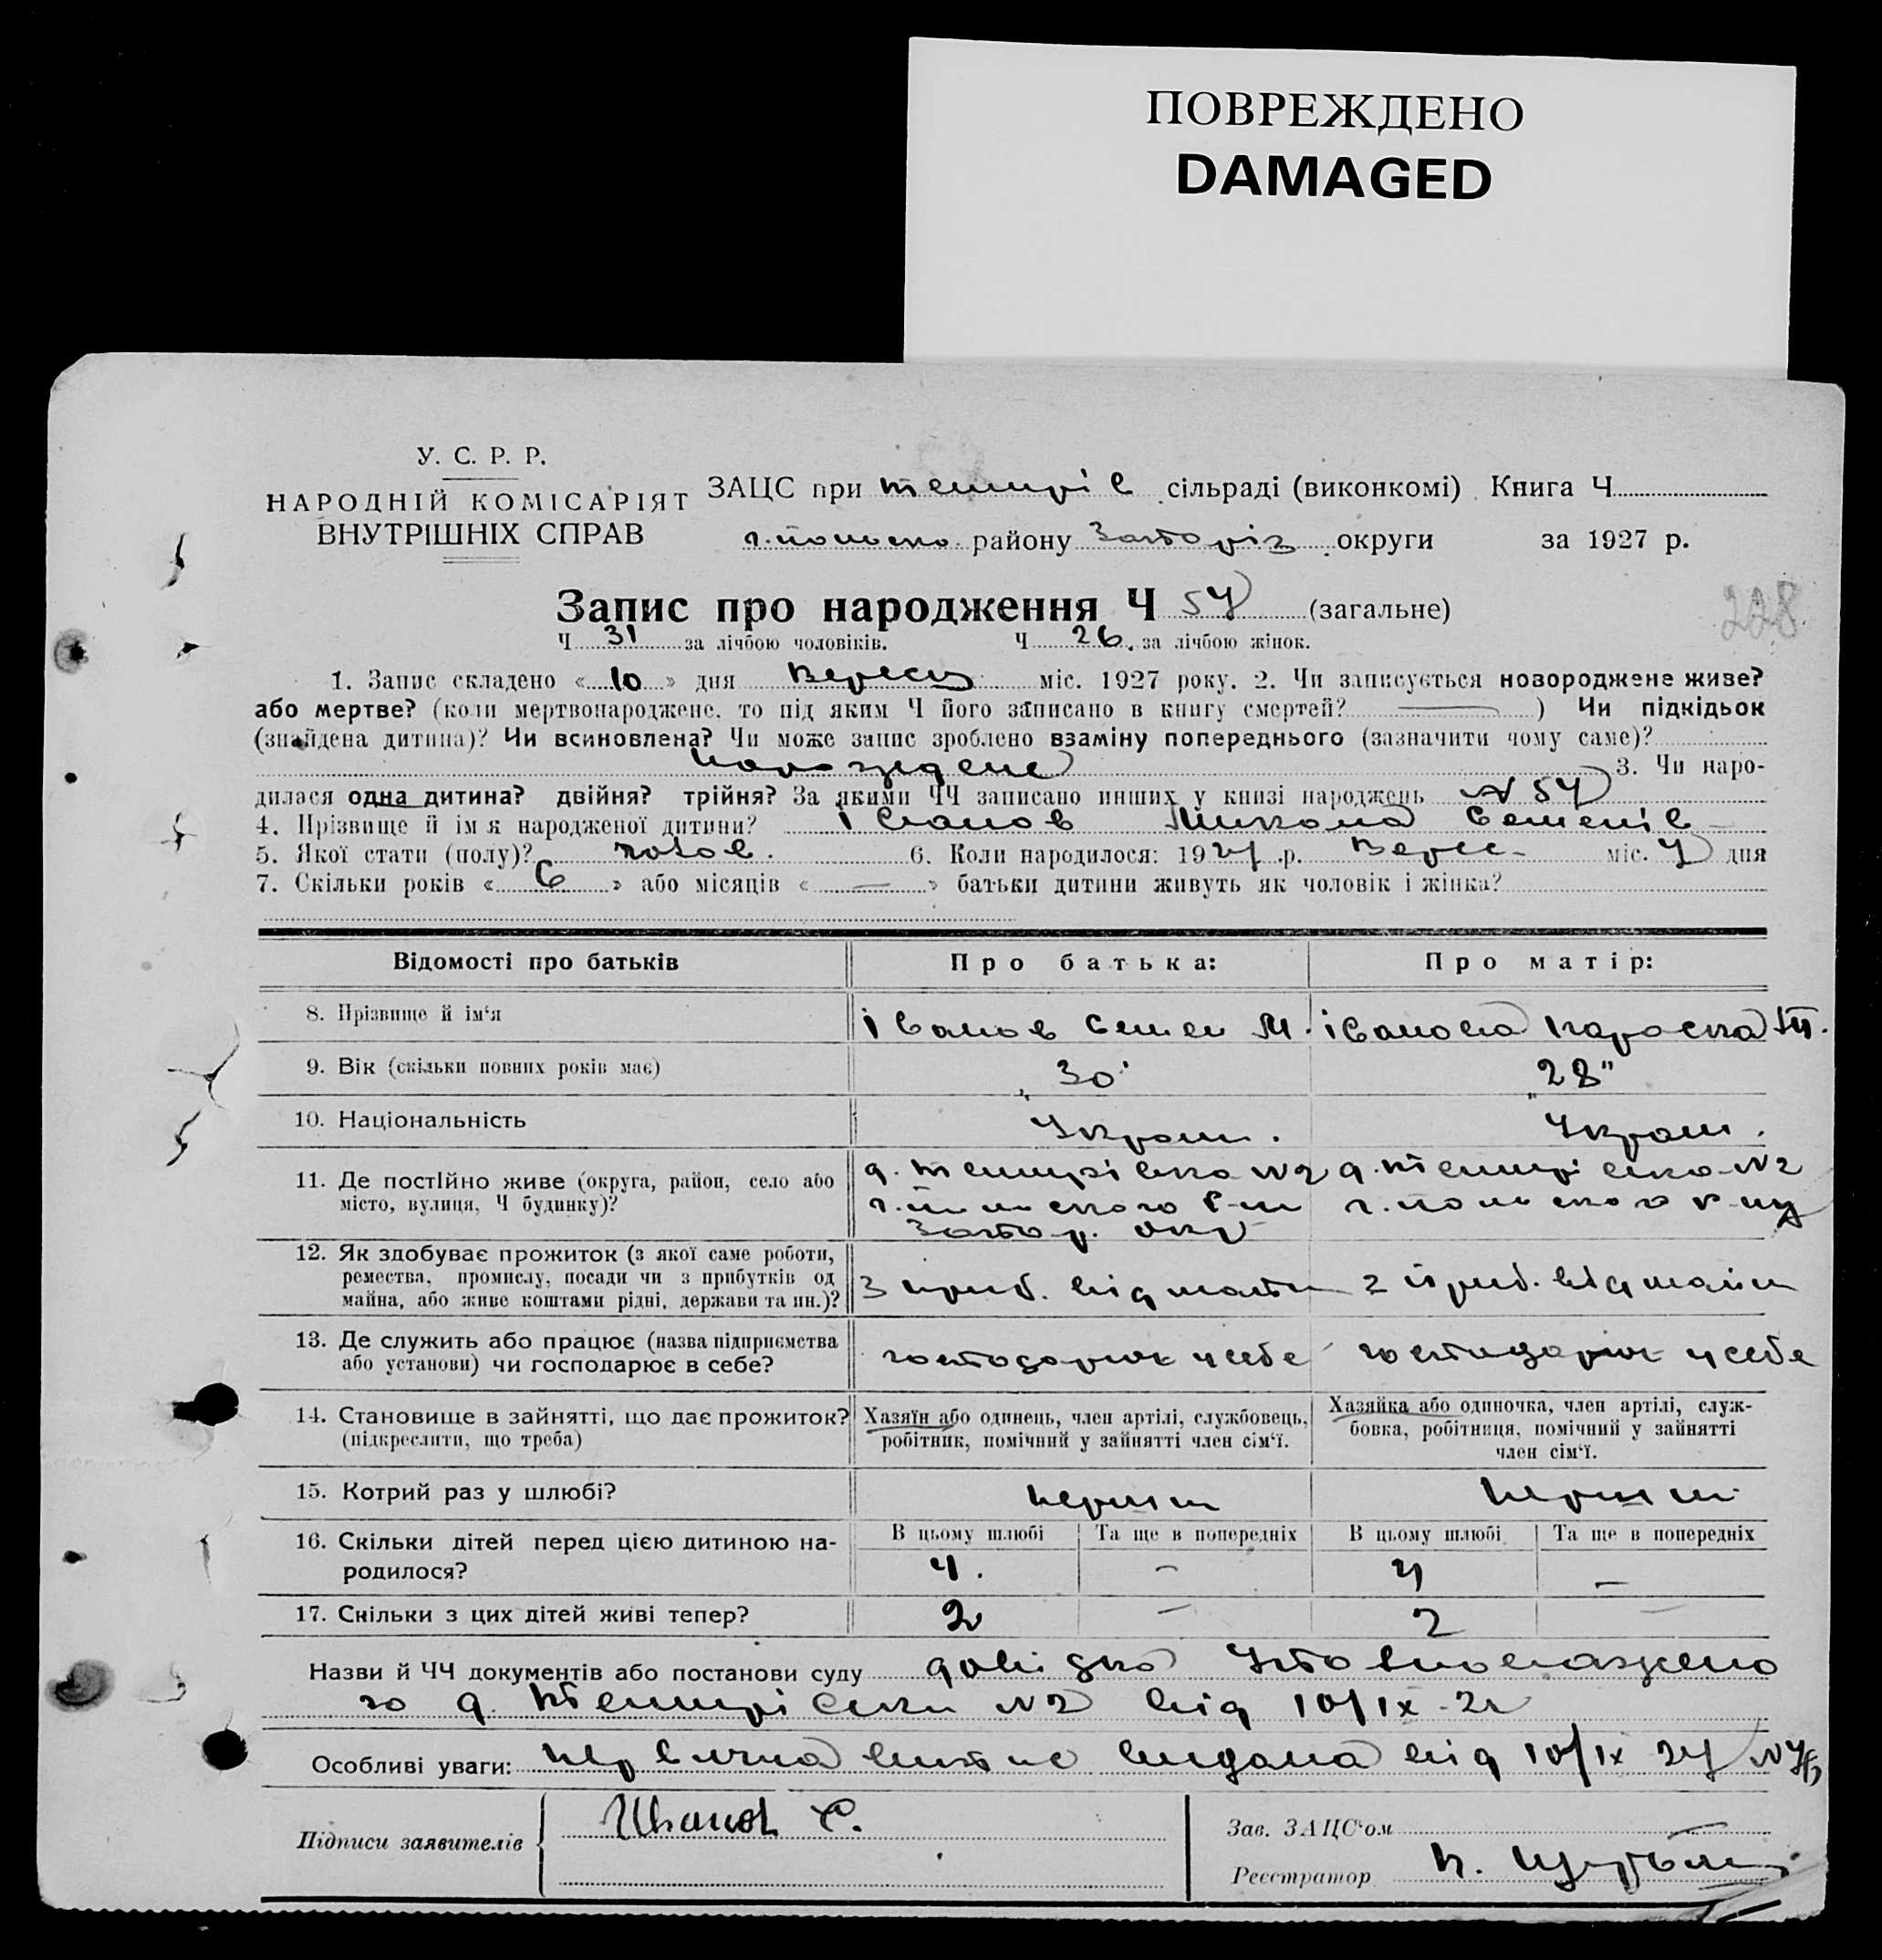 ПОВРЕЖДЕНО
DAMAGED
У. С. Р. Р.
НАРОДНІЙ КОМІСАРІЯТ
ВНУТРІШНІХ СПРАВ
ЗАЦС при сільраді (виконкомі) Книга Ч
району Запоріз округи за 1927 р.
Запис про народження Ч 57 (загальне)
228
Ч 31 за лічбою чоловіків. Ч 26 за лічбою жінок.
1. Запис складено « 10 » дня Вересня міс. 1927 року. 2. Чи записується новороджене живе?
або мертве? (коли мертвонароджене, то під яким Ч його записано в книгу смертей? — ) Чи підкідьок
(знайдена дитина)? Чи всиновлена? Чи може запис зроблено взаміну попереднього (зазначити чому саме)?
3. Чи наро-
дилася одна дитина? двійня? трійня? За якими ЧЧ записано инших у книзі народжень № 57
4. Прізвище й ім'я народженої дитини? Іванов Микола Семенів
5. Якої стати (полу)? чолов. 6. Коли народилося: 1927 р. Верес міс. 7 дня
7. Скільки років « 6 » або місяців « — » батьки дитини живуть як чоловік і жінка?
Відомості про батьків Про батька: Про матір:
8. Прізвище й ім‘я Іванов Семен М. Іванова Параска
9. Вік (скільки повних років має) „30" „28"
10. Національність Україн. Україн.
11. Де постійно живе (округа, район, село або
місто, вулиця, Ч будинку)?
Запор. окр
12. Як здобуває прожиток (з якої саме роботи,
ремества, промислу, посади чи з прибутків од
майна, або живе коштами рідні, держави та ин.)?
З приб. від майна з приб. від майна
13. Де служить або працює (назва підприємства
або установи) чи господарює в себе?
господарює у себе господарює у себе
14. Становище в зайнятті, що дає прожиток?
(підкреслити, що треба)
Хазяїн або одинець, член артілі, службовець,
робітник, помічний у зайнятті член сім‘ї.
Хазяйка або одиночка, член артілі, служ-
бовка, робітниця, помічний у зайнятті
член сім‘ї.
15. Котрий раз у шлюбі? перший перший
16. Скільки дітей перед цією дитиною на-
родилося?
В цьому шлюбі Та ще в попередніх В цьому шлюбі Та ще в попередніх
4. – 4 –
17. Скільки з цих дітей живі тепер? 2 – 2 –
Назви й ЧЧ документів або постанови суду довідка Уповноважено
го д. №2 від 10/ІХ-27
Особливі уваги: первична випис видана від 10/ІХ 27
Підписи заявителів Иванов С.
Зав. ЗАЦС‘ом
Реєстратор